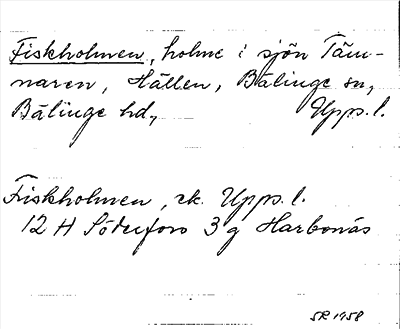 Fiskholmen, holme i sjön Täm-
naren, Hällen, Bälinge sn,
Bälinge hd, Upps. l.
Fiskholmen, ek. Upps. l.
12 H Söderfors 3 g Harbonäs
SR 1958